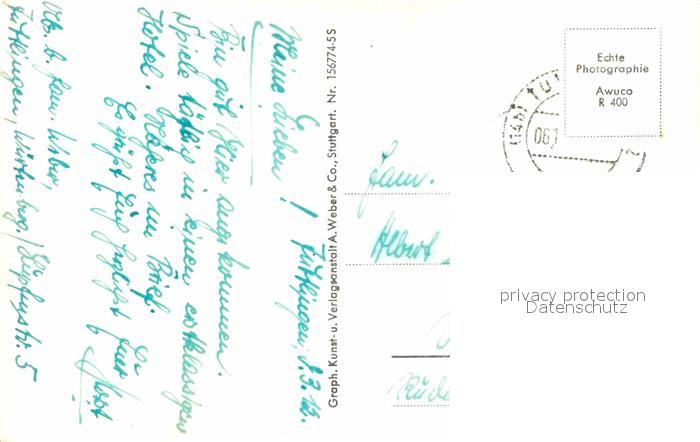 Tuttlingen, 5.3.
Meine Lieben!
Bin gut hier angekommen.
Spiele täglich in einem erstklassigen
Hotel. Näheres im Brief.
Es grüßt Euch herzlichst Euer
Horst
Adr. b. Fam. Weber,
Tuttlingen/Württbrg./
Graph. Kunst- u. Verlagsanstalt A. Weber & Co., Stuttgart. Nr. 156774-5S
Echte
Photographie
Awuco
R 400
(14b) TU
06.
Fam.
Albert
privacy protection
Datenschutz